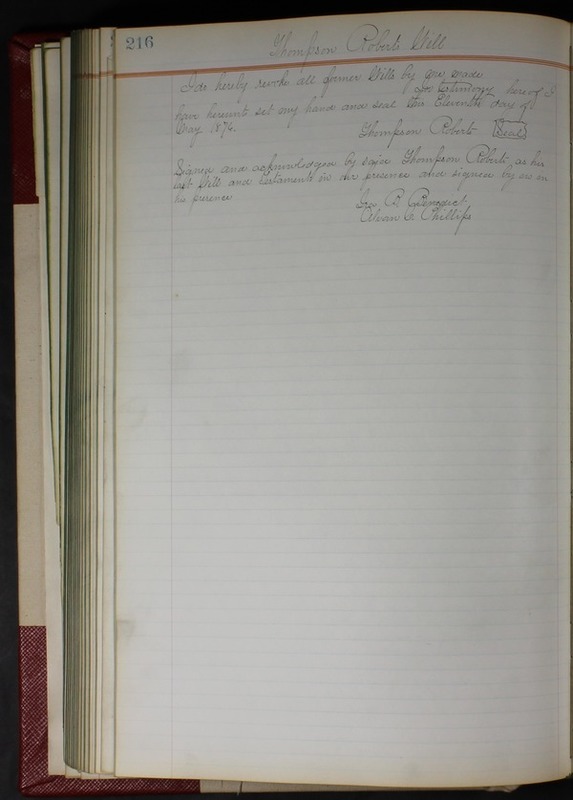 216
Thompson Roberts Will
I do hereby revoke all former Wills by me made
In testimony hereof I
have hereunto set my hand and seal this Eleventh day of
May 1876.
Thompson Roberts Seal
Signed and acknowledged by said Thompson Roberts as his
last Will and testament in our presence and signed by us in
his presence
Geo B. Benedict
Alvan C. Phillips